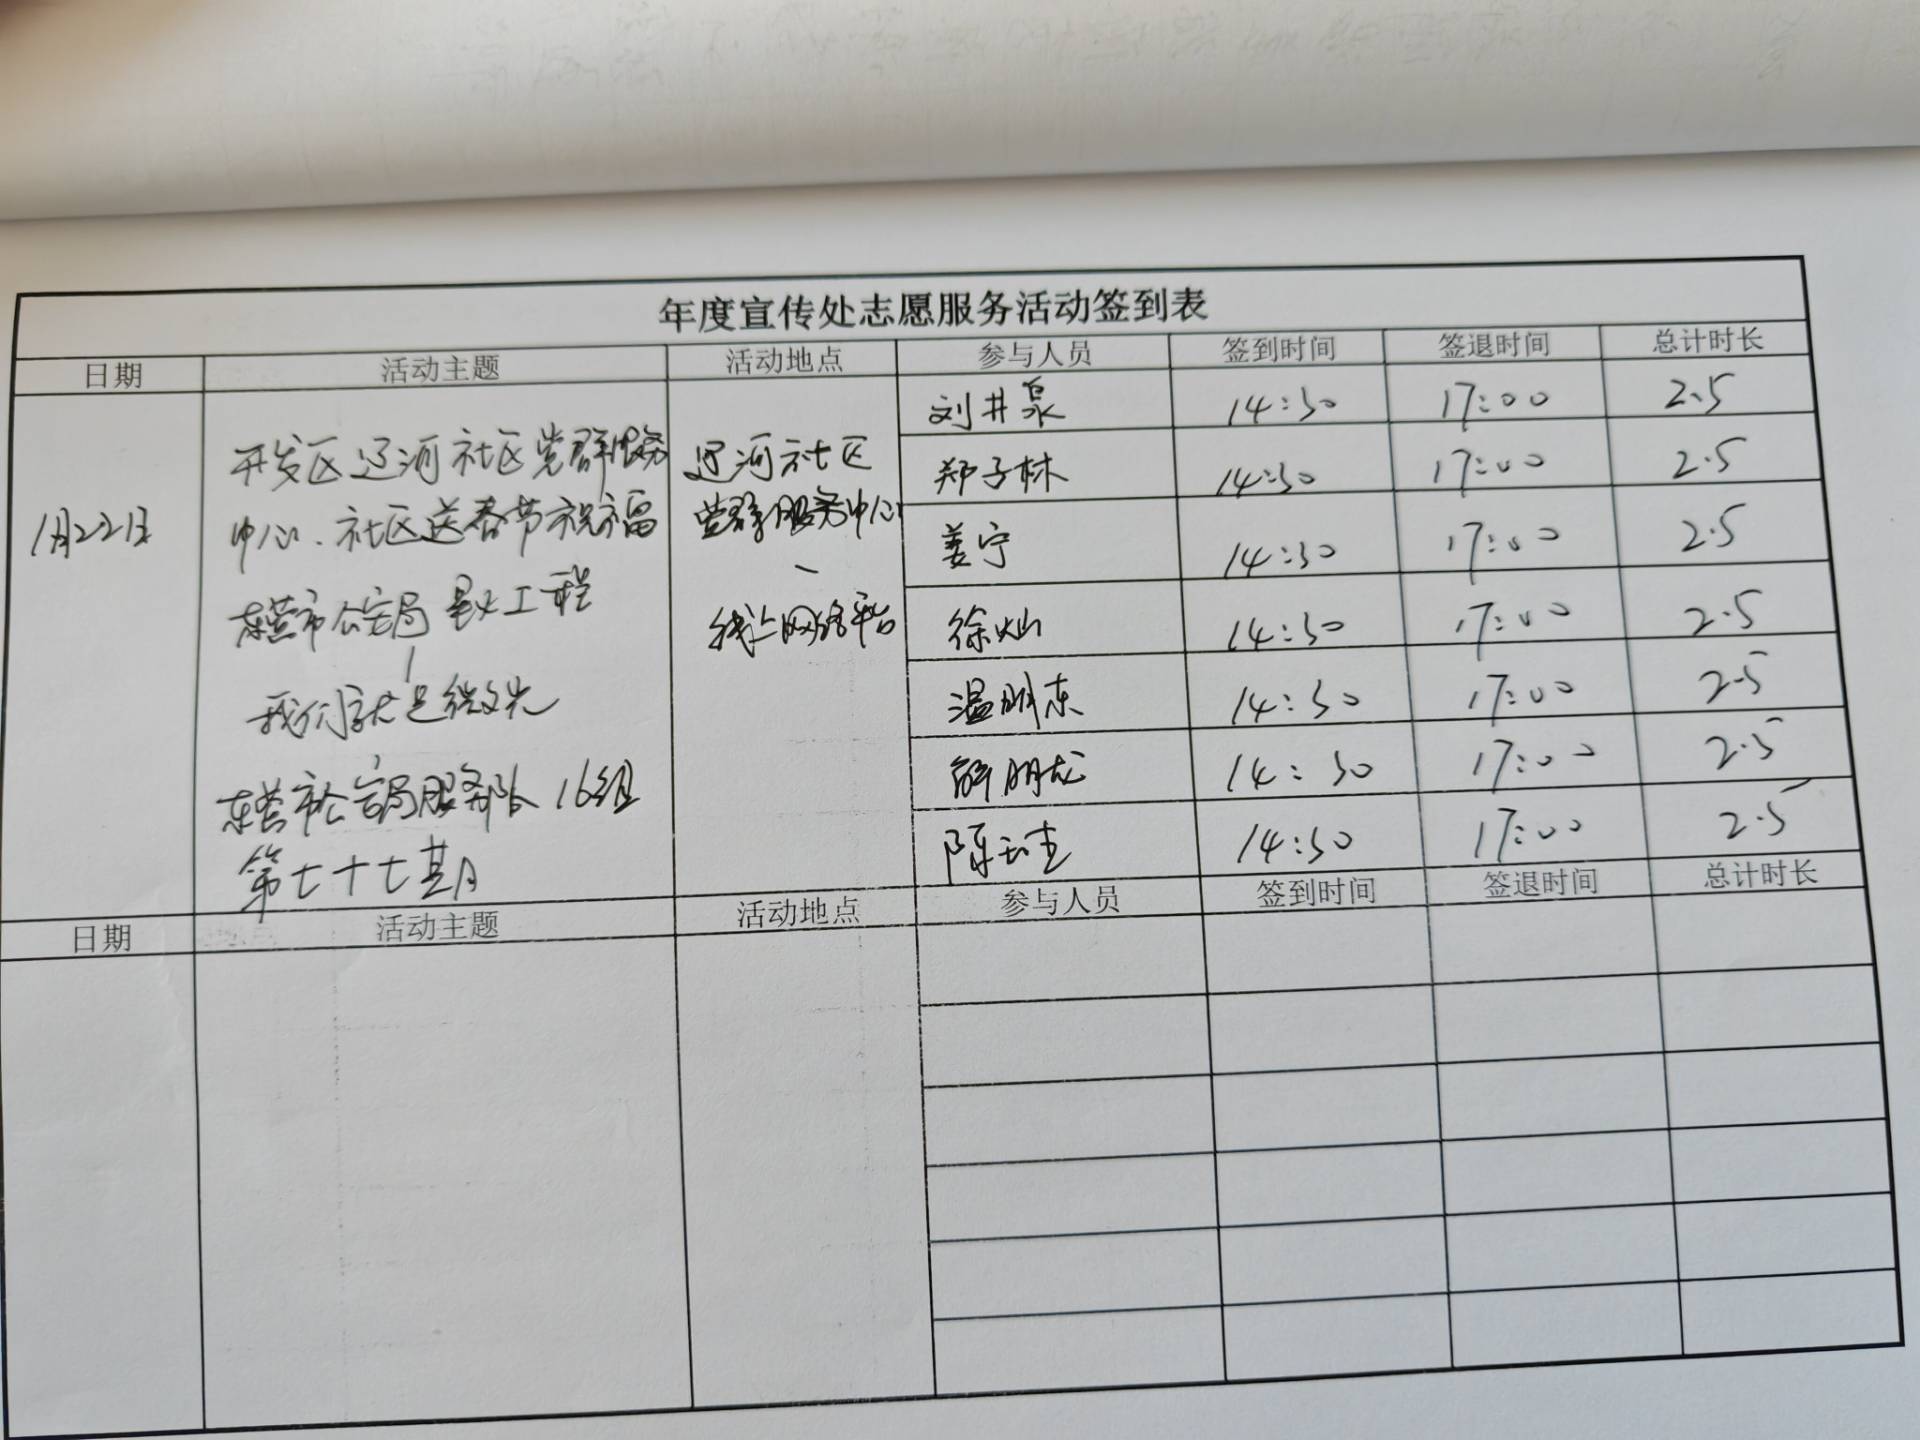 年度宣传处志愿服务活动签到表
日期 活动主题 活动地点 参与人员 签到时间 签退时间 总计时长
1月22日
开发区辽河社区党群服务
中心、社区送春节祝福
东营市公安局 星火工程
我们就是微光
东营市公安局服务队16组
第七十七期
辽河社区
党群服务中心
、
线上网络平台
刘井泉 14:30 17:00 2.5
郑子林 14:30 17:00 2.5
姜宁 14:30 17:00 2.5
徐灿 14:30 17:00 2.5
温明东 14:30 17:00 2.5
解明龙 14:30 17:00 2.5
陈 14:30 17:00 2.5
日期 活动主题 活动地点 参与人员 签到时间 签退时间 总计时长